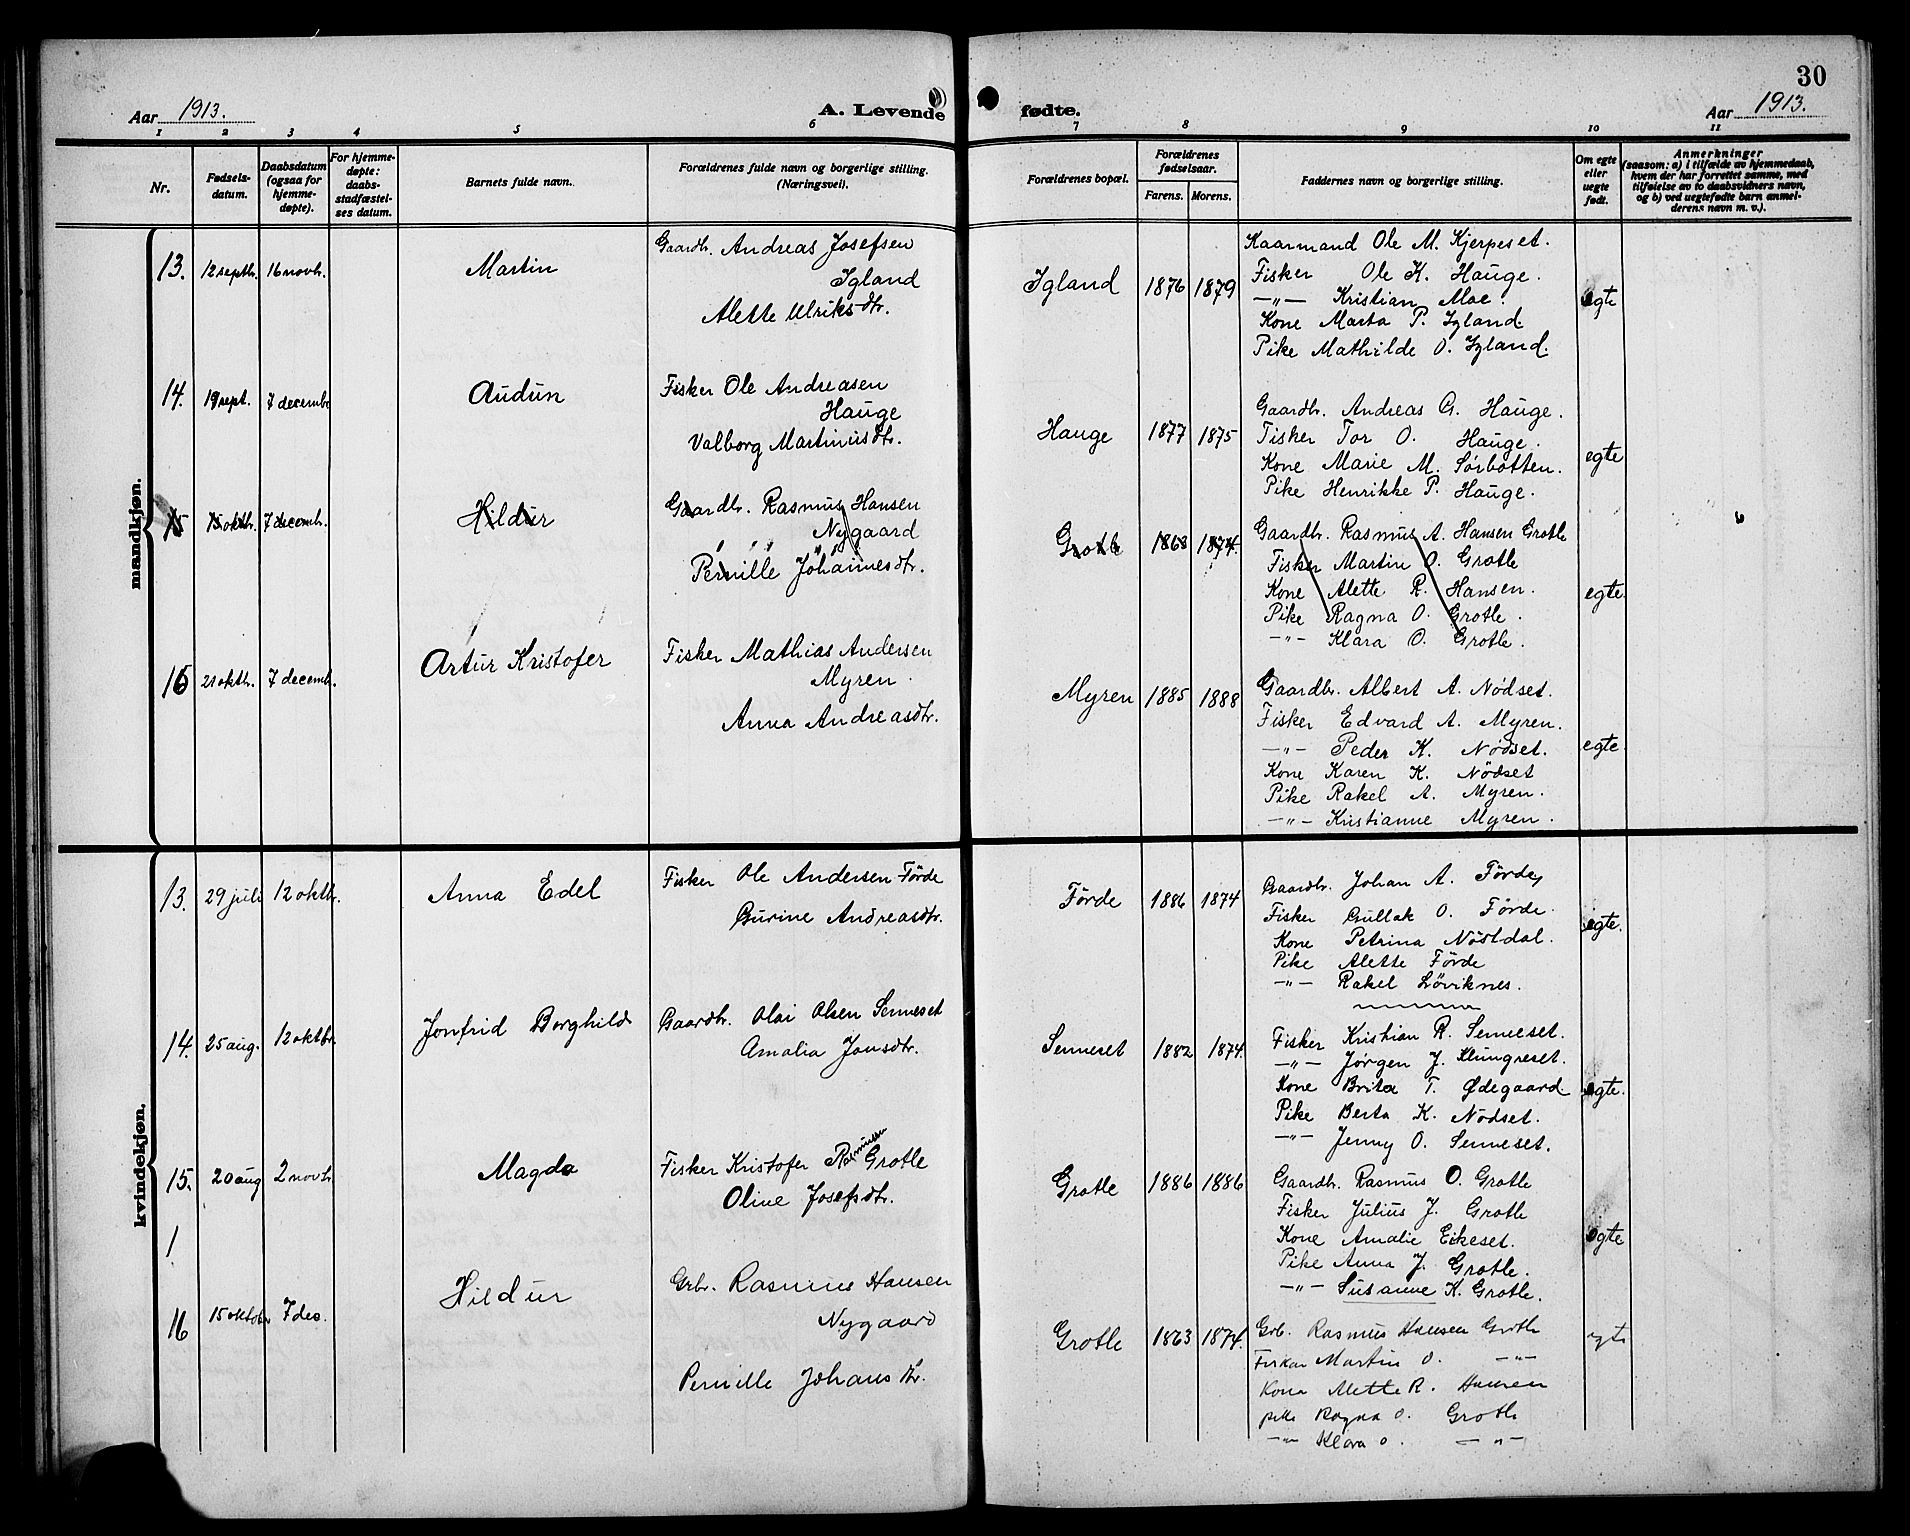 30
Aar 1913.
A. Levende fødte.
Aar 1913.
1 2 3 4 5 6 7 8 9 10 11
Nr.
Fødsels-
datum.
Daabsdatum
(ogsaa for
hjemme-
døpte).
For hjemme-
døpte:
daabs-
stadfæstel-
ses datum.
Barnets fulde navn.
Forældrenes fulde navn og borgerlige stilling.
(Næringsvei).
Forældrenes bopæl.
Forældrenes
fødselsaar.
Farens. Morens.
Faddernes navn og borgerlige stilling.
Om egte
eller
uegte
født.
Anmerkninger
(saasom: a) i tilfælde av hjemmedaab,
hvem der har forrettet samme, med
tilføielse av to daabsvidners navn,
og b) ved uegtefødte barn anmel-
derens navn m. v.).
mandkjøn.
13. 12 septbr. 16 novbr. Martin
Gaardbr. Andreas Josefsen
Igland
Alette Ulriksdtr.
Igland 1876 1879
Kaarmand Ole M. Kjerpeset.
Fisker Ole K. Hauge.
—"— Kristian Moe.
Kone Marta P. Igland.
Pike Mathilde O. Igland.
egte
14. 19 sept. 7 decembr. Audun
Fisker Ole Andreasen
Hauge
Valborg Martinusdtr.
Hauge 1877 1875
Gaardbr. Andreas G. Hauge.
Fisker Tor O. Hauge.
Kone Marie M. Sørbotten.
Pike Henrikke P. Hauge.
egte
15 15 oktbr. 7 decembr. Hildur
Gaardbr. Rasmus Hansen
Nygaard
Pernille Johannesdtr.
Grotle 1868 1874.
Gaardbr. Rasmus A. Hansen Grotle
Fisker Martin O. Grotle
Kone Alette R. Hansen.
Pike Ragna O. Grotle.
—"— Klara O. Grotle.
egte.
16 21 oktbr. 7 decembr. Artur Kristofer
Fisker Mathias Andersen
Myren.
Anna Andreasdtr.
Myren 1885 1888
Gaardbr. Albert A. Nødset.
Fisker Edvard A. Myren.
—"— Peder K. Nødset.
Kone Karen K. Nødset
Pike Rakel A. Myren.
—"— Kristianne Myren.
egte.
kvindekjøn.
13. 29 juli 12 oktbr. Anna Edel
Fisker Ole Andersen Förde
Gurine Andreasdtr.
Förde 1886 1874
Gaardbr. Johan A. Förde,
Fisker Gullak O. Förde.
Kone Petrina Nöstdal.
Pike Alette Förde
—"— Rakel Löviknes.
egte.
14. 25 aug. 12 oktbr. Jonfrid Borghild
Gaardbr. Olai Olsen Senneset
Amalia Jonsdtr.
Senneset 1882 1874.
Fisker Kristian R. Senneset.
—"— Jørgen J. Klungreset.
Kone Brita T. Ødegaard.
Pike Berta K. Nødset.
—"— Jenny O. Senneset.
egte.
15. 20 aug 2 novbr. Magda
Fisker Kristofer Rasmussen Grotle
Oline Josefsdtr.
Grotle 1886 1886
Gaardbr. Rasmus O. Grotle
Fisker Julius J. Grotle
Kone Amalie Eikeset.
Pike Anna J. Grotle.
—"— Susanne K. Grotle.
egte
1
16 15 oktober 7 des. Hildur
Grbr. Rasmus Hansen
Nygaard
Pernille Johansdtr.
Grotle 1863 1874.
Grb. Rasmus Hansen Grotle
Fisker Martin O. —"—
Kona Alette R. Hansen
pike Ragna O. Grotle
—"— Klara O. —"—
egte